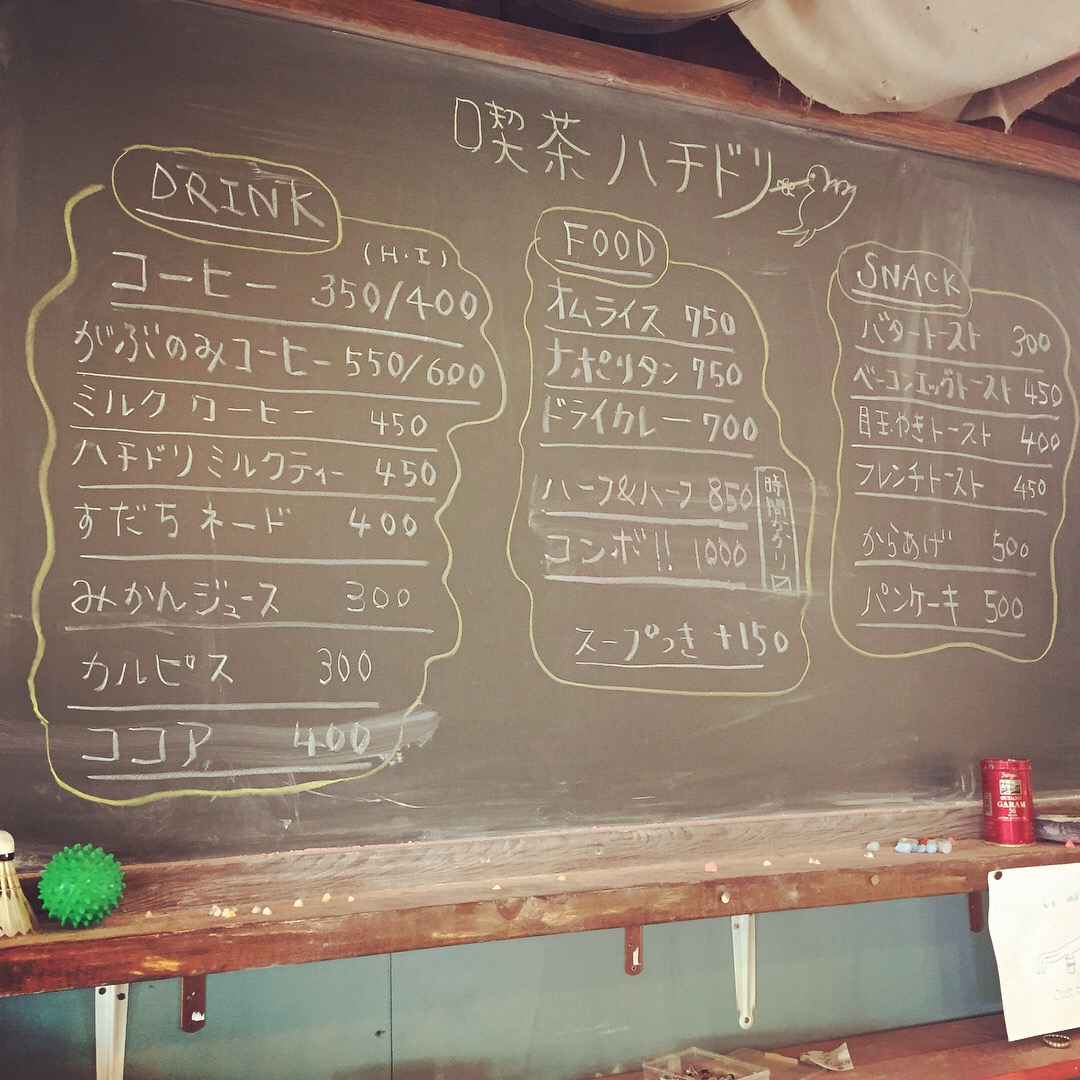 喫茶 ハチドリ
DRINK
(H・I)
コーヒー 350/400
がぶのみコーヒー 550/600
ミルクコーヒー 450
ハチドリミルクティー 450
すだちネード 400
みかんジュース 300
カルピス 300
ココア 400
FOOD
オムライス 750
ナポリタン 750
ドライカレー 700
ハーフ&ハーフ 850
コンボ!! 1000
時間かかり〼
スープつき +150
SNACK
バタートースト 300
ベーコンエッグトースト 450
目玉やきトースト 400
フレンチトースト 450
からあげ 500
パンケーキ 500
GUDANG
GARAM